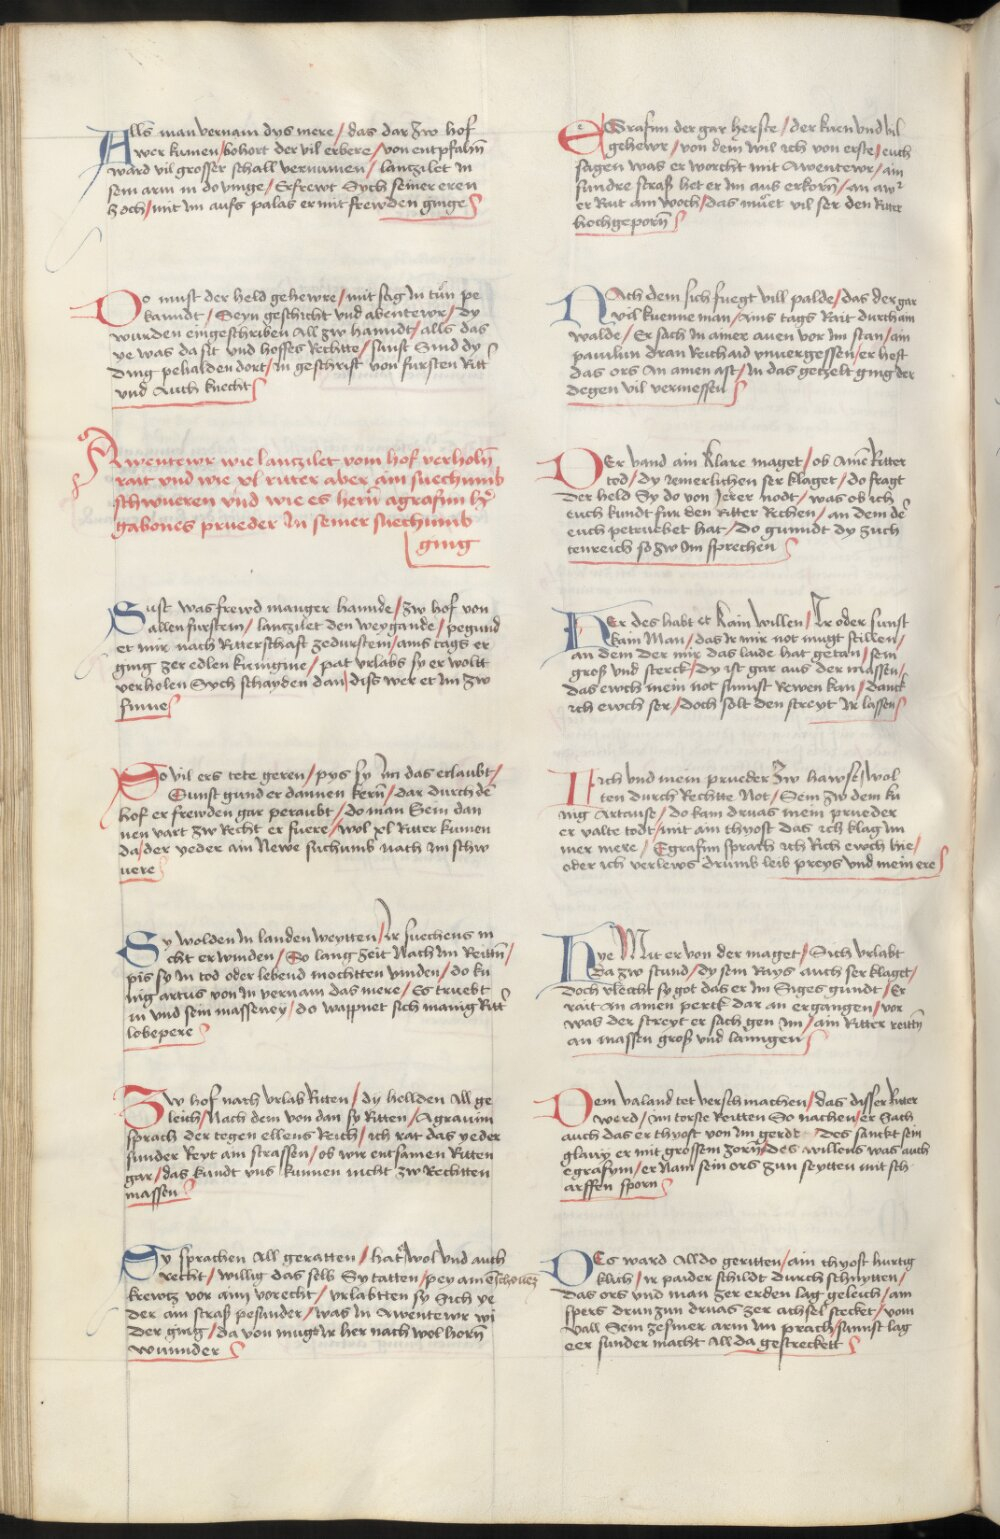 Alls man vernam dys mere / das dar zw hof
wer kumen / bohort der vil erbere / von entpfahn̄
ward vil grosser schall vernumen / lantzilet In
sein arm in do vinge / Erfrewt Sych seiner eren
hoch / mit im aufs palas er mit frewden ginge
Do must der held gehewre / mit sag In tůn pe
kanndt / Seyn geschicht vnd abentewr / dy
wurden eingeschriben All zw hanndt / alls das
ye was da sit vnd hoffes Rechtte / sunst Sind dy
ding pehalden dort / In geschrift von fursten Ritt
vnd Auch knecht
Awentewr wie lantzilet vom hof verholn̄
rait vnd wie xl ritter aber am suechumb
schwueren vnd wie es hern̄ agrafun
gabones prueder In seiner suechumb
ging
Sust was frewd manger hannde / zw hof von
allen fursten / lantzilet den weygande / pegund
et mir nach Ritterschaft zedursten / ains tags er
ging zer edlen kuniginne / pat vrlabs sy er woltt
verholen Sych schayden dan / diss wer et im zw
sinne
So vil ers tete geren / pys sy Im das erlaubt /
Sunst gund er dannen kern̄ / dar durch de
hof er frewden gar peraubt / do man Sein dan
nen vart zw recht er fuere / wol xl Ritter kumen
da / der yeder ain Newe suchumb nach im schw
uere
Sy wolden In landen weytten / Ir suechens in
cht erwinden / So lang zeit Nach im Reittn̄ /
pis sy In tod oder lebend mochtten vinden / do ku
nig artus von In vernam das mere / Es truebt
in vnd sein masseney / do wappnet sich manig Ritt
lobepere
Zw hof nach vrlab Ritten / dy hellden All ge
leich / Nach dem von dan sy Ritten / Agrauin
sprach der tegen ellens Reich / ich rat das yeder
sunder Reyt ain strassen / ob wir entsamen Ritten
gar / das kundt vns kunnen nicht zw Rechtten
massen
Sy sprachen All geratten / hat er wol vnd auch
recht / willig das selb Sy tatten / pey aim Eschouez
krewtz vor aim vorecht / vrlabtten sy Sich ye
der ain straß pesunder / was In Awentewr wi
der ging / da von mugt ir her nach wol horn̄
wunnder
EGrafun der gar herste / der kuen vnd vil
gehewr / von dem wil ich von erste / euch
sagen was er worcht mit Awentewr / ain
sundre straß het er im aus erkorn̄ / an aw
er Rait ain woch / das můet vil ser den Ritter
hochgeporn̄
NAch dem sich fuegt vill palde / das der gar
vil kuenne man / Ains tags Rait durch ain
walde / Er sach In ainer auen vor im stan / ain
pauilun dran Reichait vnuergessen / er heft
das ors An ainen ast / In das getzelt ging der
degen vil vermessen
DEr vand ain klare maget / ob Aim̄e Ritter
tod / dy Iemerlichen ser klaget / do fragt
der held Sy do von Jerer nodt / was ob ich
euch kundt fur den Ritter Rechen / an dem de
euch petruebet hat / do gunndt dy zuch
tenreich so zw im sprechen
HEr des habt et kain willen / Ir oder sunst
kain Man / das ir mir not mugt stillen /
an dem der mir das laide hat getan / sein
groß vnd sterck / dy ist gar aus der massen /
das ewch mein not sunnst Rewen kan / danck
ich ewch ser / doch solt den streyt ir lassen
Ich vnd mein prueder zw hawse / wol
ten durch Rechtte Not / Sein zw dem ku
nig Artause / do kam druas mein prueder
er valte todt / mit aim thyost das ich klag im
mer mere / Egrafun sprach ich Rich ewch hie /
oder ich verlews drumb leib preys vnd mein ere
Hye Mit er von der maget / Sich vrlabt
da zw stund / dy sein Rays auch ser klaget /
doch vleicht sy got das er im Siges gundt / Er
rait An ainen perck dar an ergangen / vor
was der streyt er sach gen im / ain Ritter reittn̄
an massen groß vnd lanngen
Dem valand tet verschmachen / das disser Ritter
werd / im torste Reitten So nachen / er Sach
auch das er thyost von im gerdt / des sanckt sein
glauy er mit grossem zorn̄ / des willens was auch
egrafun / er Nam sein ors zun seytten mit sch
arffen sporn
DEs ward Alldo geritten / ain thyost hurtig
klich / ir paider schildt durch schnytten /
das ors vnd man zer erden lag geleich / ain
spers drunzun druas zer achsel stecket / vom
vall Sein zesmer arm im prach / sunnst lag
er sunder macht All da gestreckett